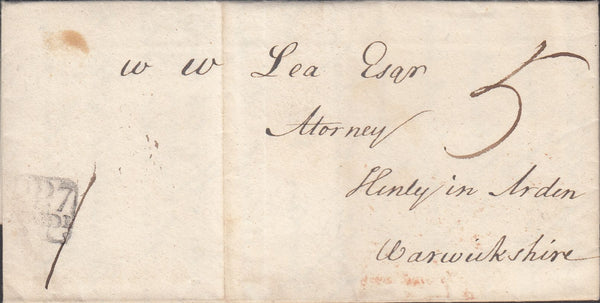 W W Lea Esqr
5
Atorney
Henly in Arden
Warwickshire